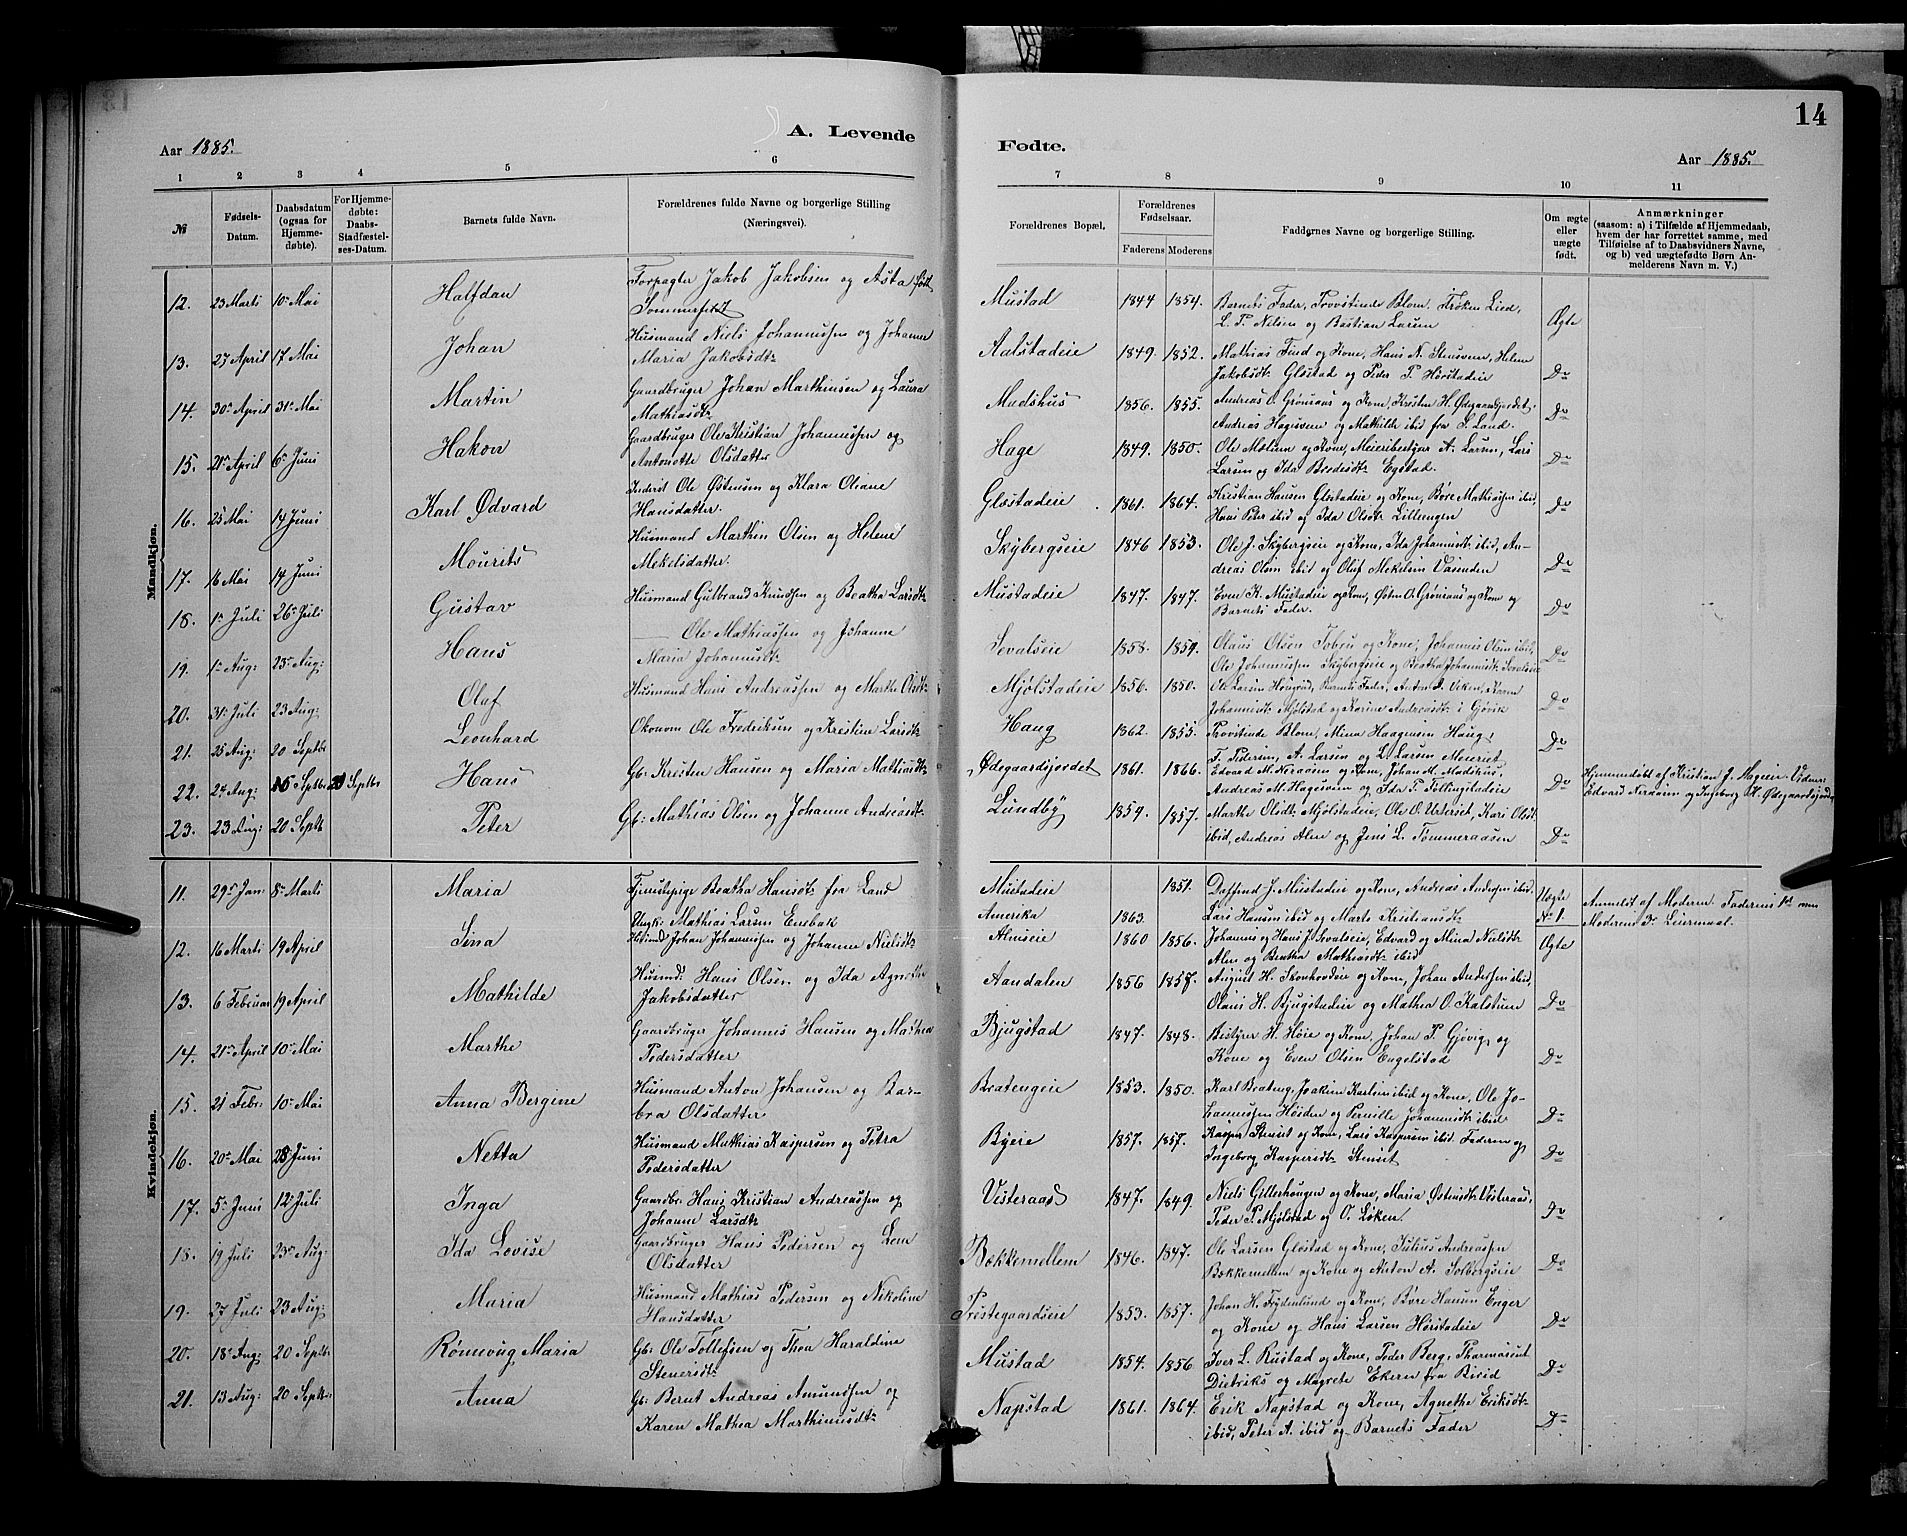 14
A. Levende
Fødte.
Aar 1885.
Aar 1885.
1 2 3 4 5 6
7 8 9 10 11
№
Fødsels-Datum.
Daabsdatum (ogsaa for Hjemme-døbte).
For Hjemme-døbte: Daabs-Stadfæstel-ses-Datum.
Barnets fulde Navn.
Forældrenes fulde Navne og borgerlige Stilling (Næringsvei).
Forældrenes Bopæl.
Forældrenes Fødselsaar.
Faderens Moderens
Faddernes Navne og borgerlige Stilling.
Om ægte eller uægte født.
Anmærkninger
(saasom: a) i Tilfælde af Hjemmedaab, hvem der har forrettet samme, med Tilføielse af to Daabsvidners Navne, og b) ved uægtefødte Børn An-melderens Navn m. V.)
Mandkjøn.
12. 23 Marts 10 Mai Halfdan Forpagter Jakob Jakobsen og Asta født
Mustad 1844 1854. Barnets Fader, Provstinde Blom, Frøken Lied,
L. P. Nilsen og Bastian Larsen Ægte
13. 27 April 17 Mai Johan Husmand Niels Johannessen og Johanne
Maria Jakobsdt.
Aalstadeie 1849. 1852. Mathias Find og Kone, Hans N. Stensveen, Helene
Jakobsdt. Gløstad og Peder P. Hørstadeie Do
14. 30 April 31 Mai Martin Gaardbruger Johan Marthinsen og Laura
Mathiasdt.
Madshus 1856. 1855. Andreas O. Grønaas og Kone, Kristen H. Ødegaardsjordet,
Andreas Hageseveen og Mathilde ibid fra S. Land. Do
15. 21 April 6 Juni Hakon Gaardbruger Ole Kristian Johannessen og
Antonette Olsdatter
Hage 1849. 1850. Ole Mølum og Kone, Meieribestyrer A. Larsen, Lars
Larsen og Ida Bredesdt. Egstad. Do
16. 25 Mai 14 Juni Karl Ødvard Inderst Ole Østensen og Klara Oliane
Hansdatter.
Gløstadeie 1861. 1864. Kristian Hansen Gløstadeie og Kone, Børe Mathiassen ibid,
Hans Peter ibid og Ida Olsdt. Lilleengen Do
17. 16 Mai 14 Juni Mourits Husmand Marthin Olsen og Helene
Mekelsdatter.
Skybergseie 1846 1853. Ole J. Skybergseie og Kone, Ida Johannisdt. ibid, An-
dreas Olsen ibid og Oluf Mekelsen Vasenden Do
18. 1 Juli 26 Juli Gustav Husmand Gulbrand Knudsen og Beatha Larsdt.
Mustadeie 1847. 1847. Even K. Mustadeie og Kone, Østen O. Grønaas og Kone og
Barnets Fader. Do
19. 1 Aug: 23 Aug: Hans — Ole Mathiassen og Johanne
Maria Johannesdt.
Sevalseie 1858. 1859. Olaus Olsen Toben og Kone, Johannes Olsen ibid,
Ole Johannessen Skybergseie og Beatha Johannesdt. Sevalseie Do
20. 31 Juli 23 Aug: Olaf Husmand Hans Andreassen og Marthe Olsdt.
Mjølstadeie 1856. 1850. Ole Larsen Haugrud, Barnets Fader, Anton P. Viken, Karen
Johannesdt. Mjølstad og Karine Andreasdt. i Gjøvik Do
21. 25 Aug: 20 Septbr Leonhard Økonom Ole Frederiksen og Kristine Larsdt.
Haug 1862. 1855. Provstinde Blom, Mina Haagensen Haug,
F. Pedersen, A. Larsen og L. Larsen Meieriet Do
22. 24 Aug: 15 Septbr 20 Septbr Hans Gb: Kristen Hansen og Maria Mathiasdt.
Ødegaardsjordet 1861. 1866. Edvard M. Neraasen og Kone, Johan M. Madshus,
Andreas M. Hageseveen og Ida P. Tollingstadeie Do
Hjemmedøbt af Kristian J. Hageeie. Vidner:
Edvard Neraasen og Ingeborg H. Ødegaardsjordet
23. 23 Aug: 20 Septb Peter Gb: Mathias Olsen og Johanne Andreasdt.
Lundby 1859. 1857. Marthe Olsdt. Mjølstadeie, Ole O. Uterset, Kari Olsdt.
ibid, Andreas Alm og Jens L. Tømmeraasen Do
Kvindekjøn.
11. 29 Jan: 8 Marts Maria Tjenestepige Beatha Hansdt. fra Land
Ungk: Mathias Larsen Enebak
Mustadeie 1851.
Amerika 1863.
Daffind J. Mustadeie og Kone, Andreas Andersen ibid.
Lars Hansen ibid og Marte Kristiansdt. Uægte
No 1.
Anmeldt af Moderen. Faderens 1ste men
Moderens 3die Leiermaal.
12. 16 Marts 19 April Sina Husmd Johan Johannessen og Johanne Nielsdt.
Almseie 1860 1856. Johannes og Hans J. Sevalseie, Edvard og Mina Nielsdt.
Alm og Beatha Mathiasdt. ibid Ægte
13. 6 Februar 19 April Mathilde Husmd: Hans Olsen og Ida Agnethe
Jakobsdatter
Aandalen 1856 1857. August H. Skonhovdeie og Kone, Johan Andersen ibid,
Olaus H. Bjugstadeie og Mathea O. Kalstuen Do
14. 21 April 10 Mai Marthe Gaardbruger Johannes Hansen og Mathea
Pedersdatter
Bjugstad 1847. 1848. Bestyrer H. Høie og Kone, Johan P. Gjøvig og
Kone og Even Olsen Engelstad Do
15. 21 Febr: 10 Mai Anna Bergine Husmand Anton Johansen og Bar-
bra Olsdatter
Bratengeie 1853. 1850. Karl Brateng, Joakim Karlsen ibid og Kone, Ole Jo-
hannessen Høiden og Pernille Johannesdt. ibid Do
16. 20 Mai 28 Juni Netta Husmand Mathias Kaspersen og Petra
Pedersdatter
Byeie 1857. 1857. Kasper Stenset og Kone, Lars Kaspersen ibid, Faderen og
Ingeborg Kaspersdt. Stenset Do
17. 5 Juni 12 Juli Inga Gaardbr. Hans Kristian Andreassen og
Johanne Larsdt.
Vesteraas 1847. 1849. Niels Gillerhaugen og Kone, Maria Østensdt. Vesteraas,
Peder P. Mjølstad og O. Løken. Do
18. 19 Juli 23 Aug: Ida Lovise Gaardbruger Hans Pedersen og Lene
Olsdatter
Bækkemellem 1846. 1847. Ole Larsen Gløstad og Kone, Julius Andreassen
Bækkemellem og Kone og Anton A. Solbergseie Do
19. 27 Juli 23 Aug: Maria Husmand Mathias Pedersen og Nikoline
Hansdatter
Prestegaardseie 1853. 1857. Johan H. Frydenlund og Kone, Børe Hansen Enger
og Kone og Hans Larsen Hørstadeie Do
20. 18 Aug: 20 Septb: Rønnoug Maria Gb: Ole Tollefsen og Thea Haraldine
Stenersdt.
Mustad 1854. 1856 Iver L. Rustad og Kone, Peder Berg, Pharmaceut
Dietriks og Magrete Ekern fra Birid Do
21. 13 Aug: 20 Septb: Anna Gb: Bernt Andreas Amundsen og
Karen Mathea Marthinusdt.
Napstad 1861. 1864. Erik Napstad og Kone, Agnethe Eriksdt.
ibid, Peter A. ibid og Barnets Fader Do